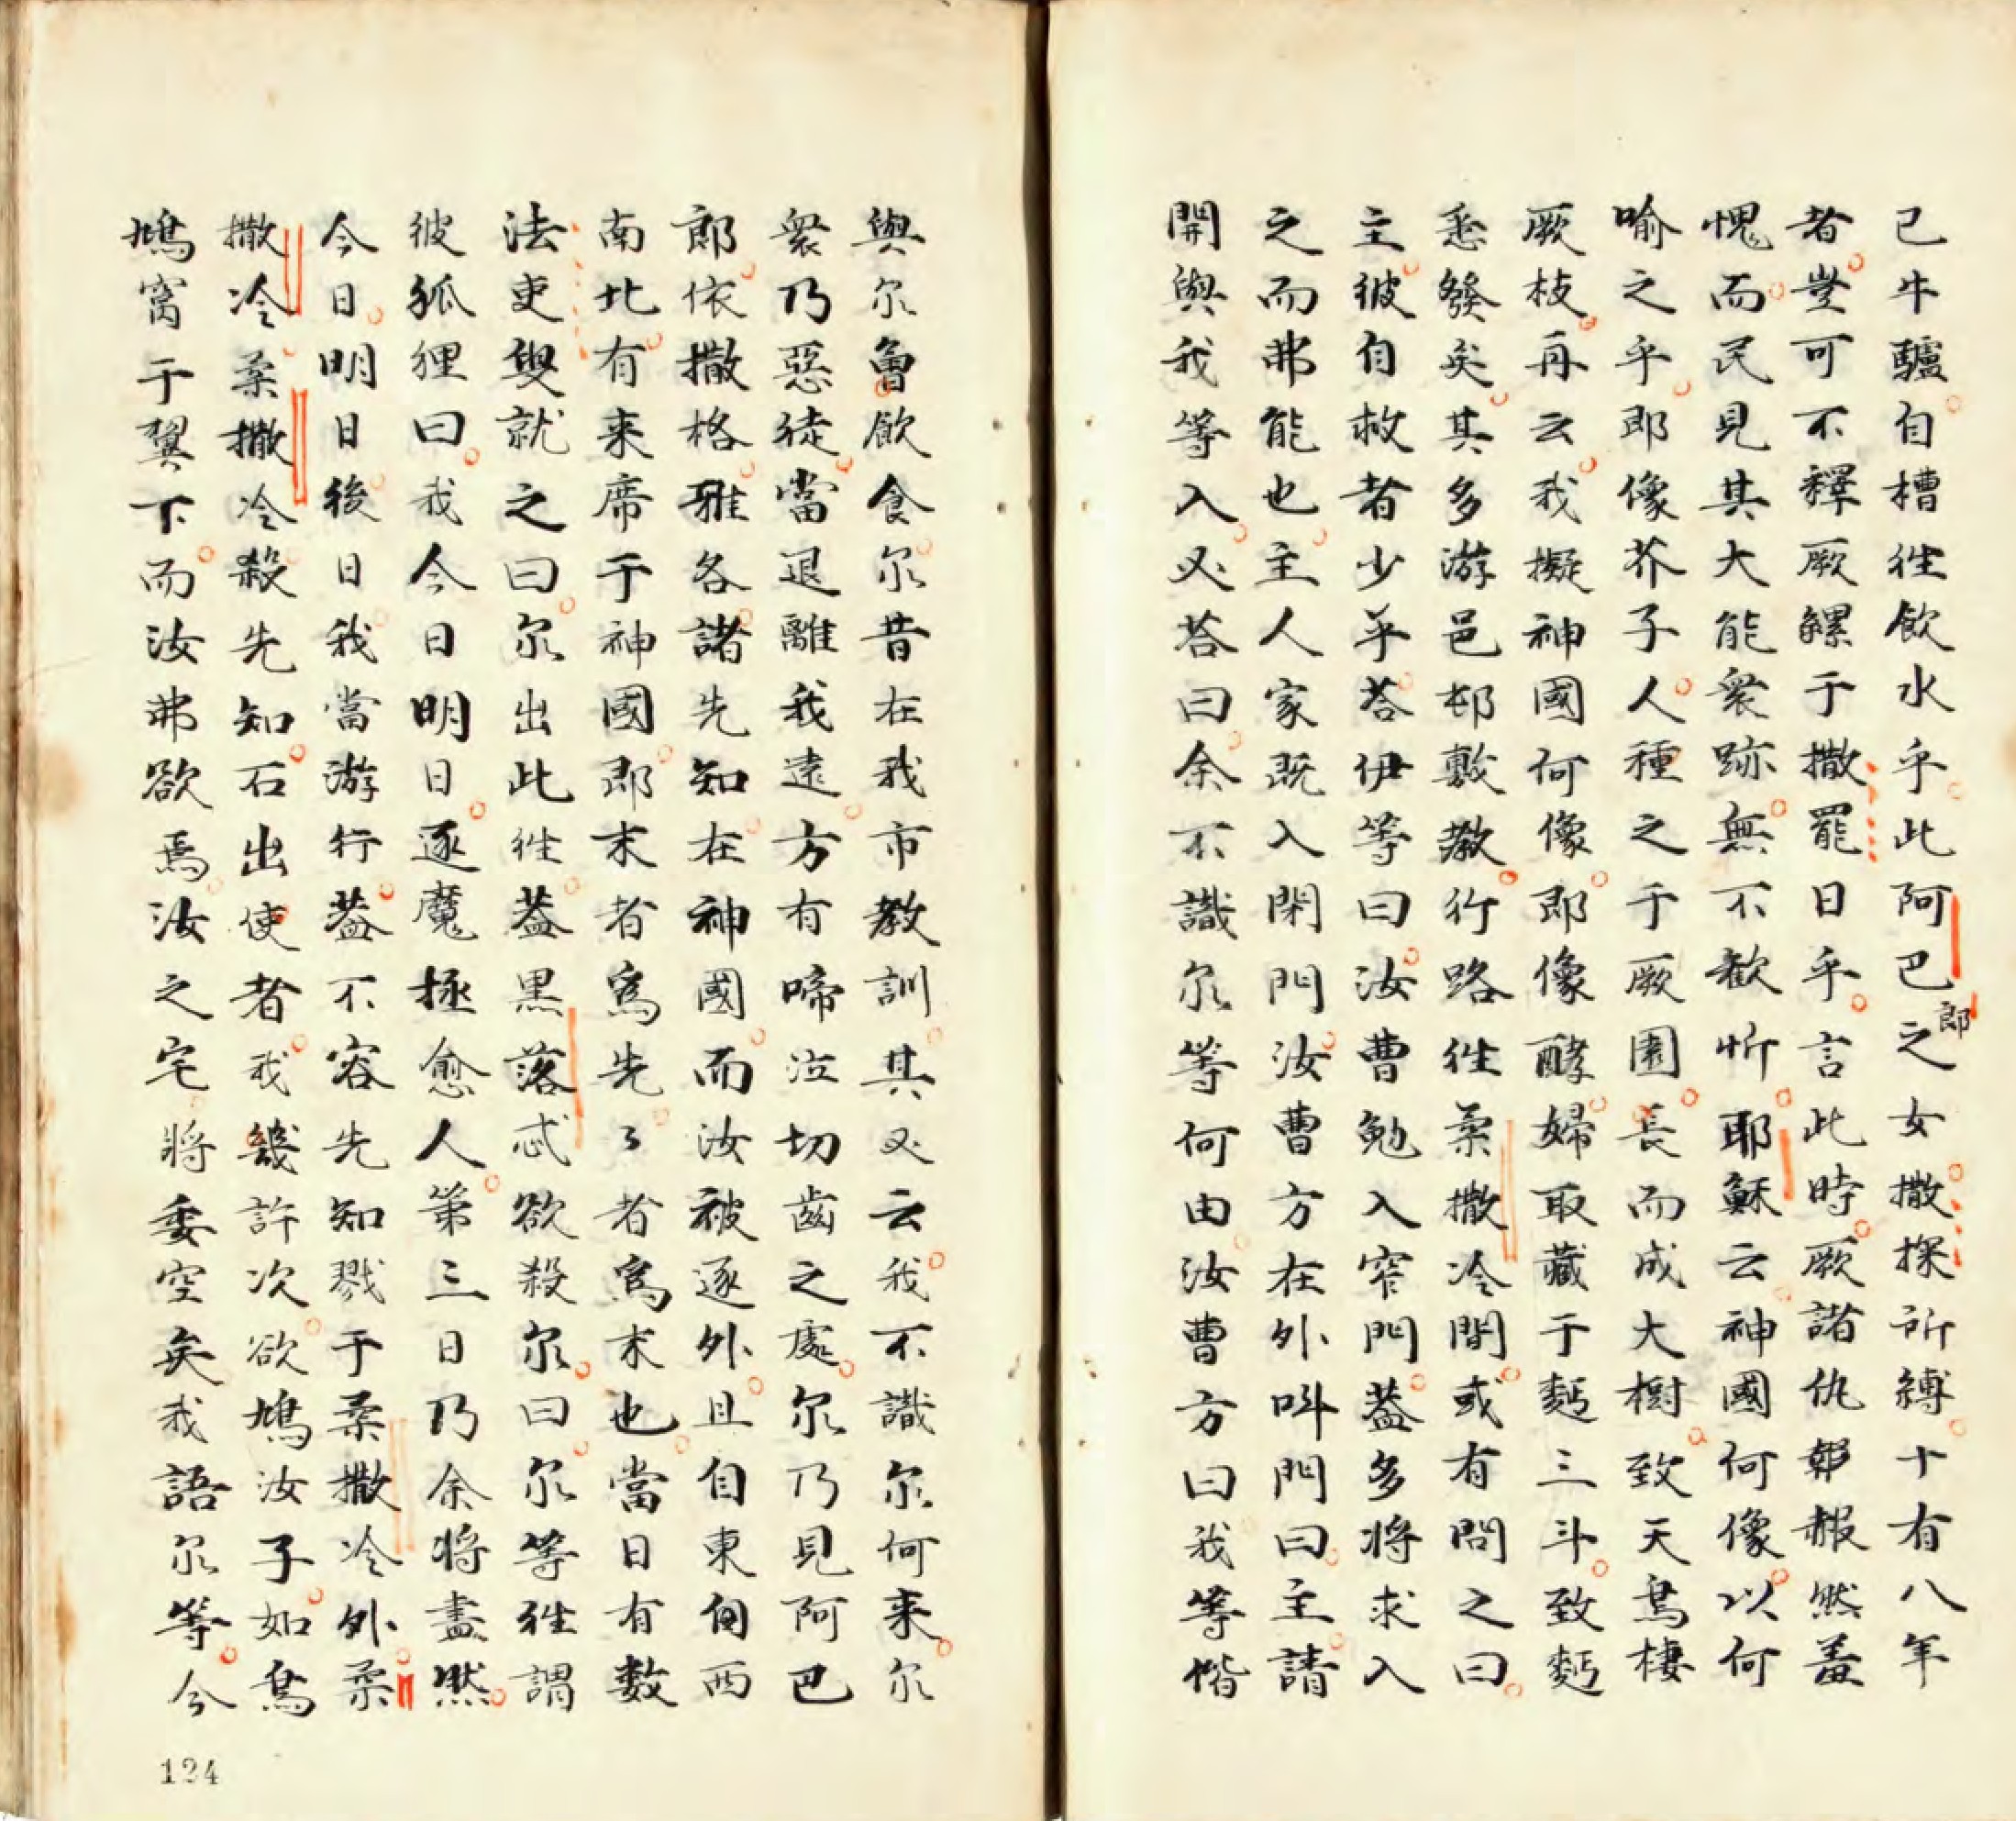 己牛驢自槽徃飲水乎此阿巴郎之女撒探所縛十有八年
者豈可不釋厥縲于撒罷日乎言此時厥諸仇郫赧然羞
愧而民見其大能衆跡無不歡忻耶穌云神國何像以何
喻之乎即像芥子人種之于厥園長而成大樹致天鳥棲
厥枝再云我擬神國何像即像酵婦取藏于麫三斗致麫
悉發矣其多游邑邨敷教行路徃柔撒冷間或有問之曰
主彼自救者少乎荅伊等曰汝曹勉入窄門葢多將求入
之而弗能也主人家既入閑門汝曹方在外呌門曰主請
開與我等入必荅曰余不識尔等何由汝曹方曰我等偕
與尔曾飲食尔昔在我市教訓其必云我不識尔何来尔
衆乃惡徒當退離我遠方有啼泣切齒之處尔乃見阿巴
郎依撒格雅各諸先知在神國而汝被逐外且自東自西
南北有来席于神國即末者爲先々者爲末也當日有数
法吏叟就之曰尔出此徃葢黒落忒欲殺尔曰尔等徃謂
彼狐狸曰我今日明日逐魔拯愈人第三日乃余将盡然
今日明日後日我當游行葢不容先知戮于柔撒冷外柔
撒冷柔撒冷殺先知石出使者我幾許次欲鳩汝子如鳥
鳩窩于翼下而汝弗欲焉汝之宅將委空矣我語尔等今
124